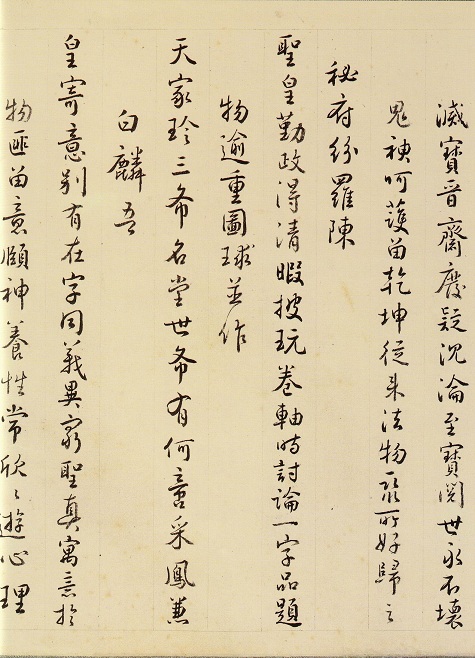 滅寶晉齋廢疑沈淪至寶閱世永不壞
鬼神呵護留乾坤從來法物聚所好歸之
秘府紛羅陳
聖皇勤政得清暇披玩卷軸時討論一字品題
物逾重圖球並作
天家珍三希名堂世希有何啻采鳳兼
白麟吾
皇寄意別有在字同義異窮聖真寓意於
物匪留意頤神養性常欣〻遊心理